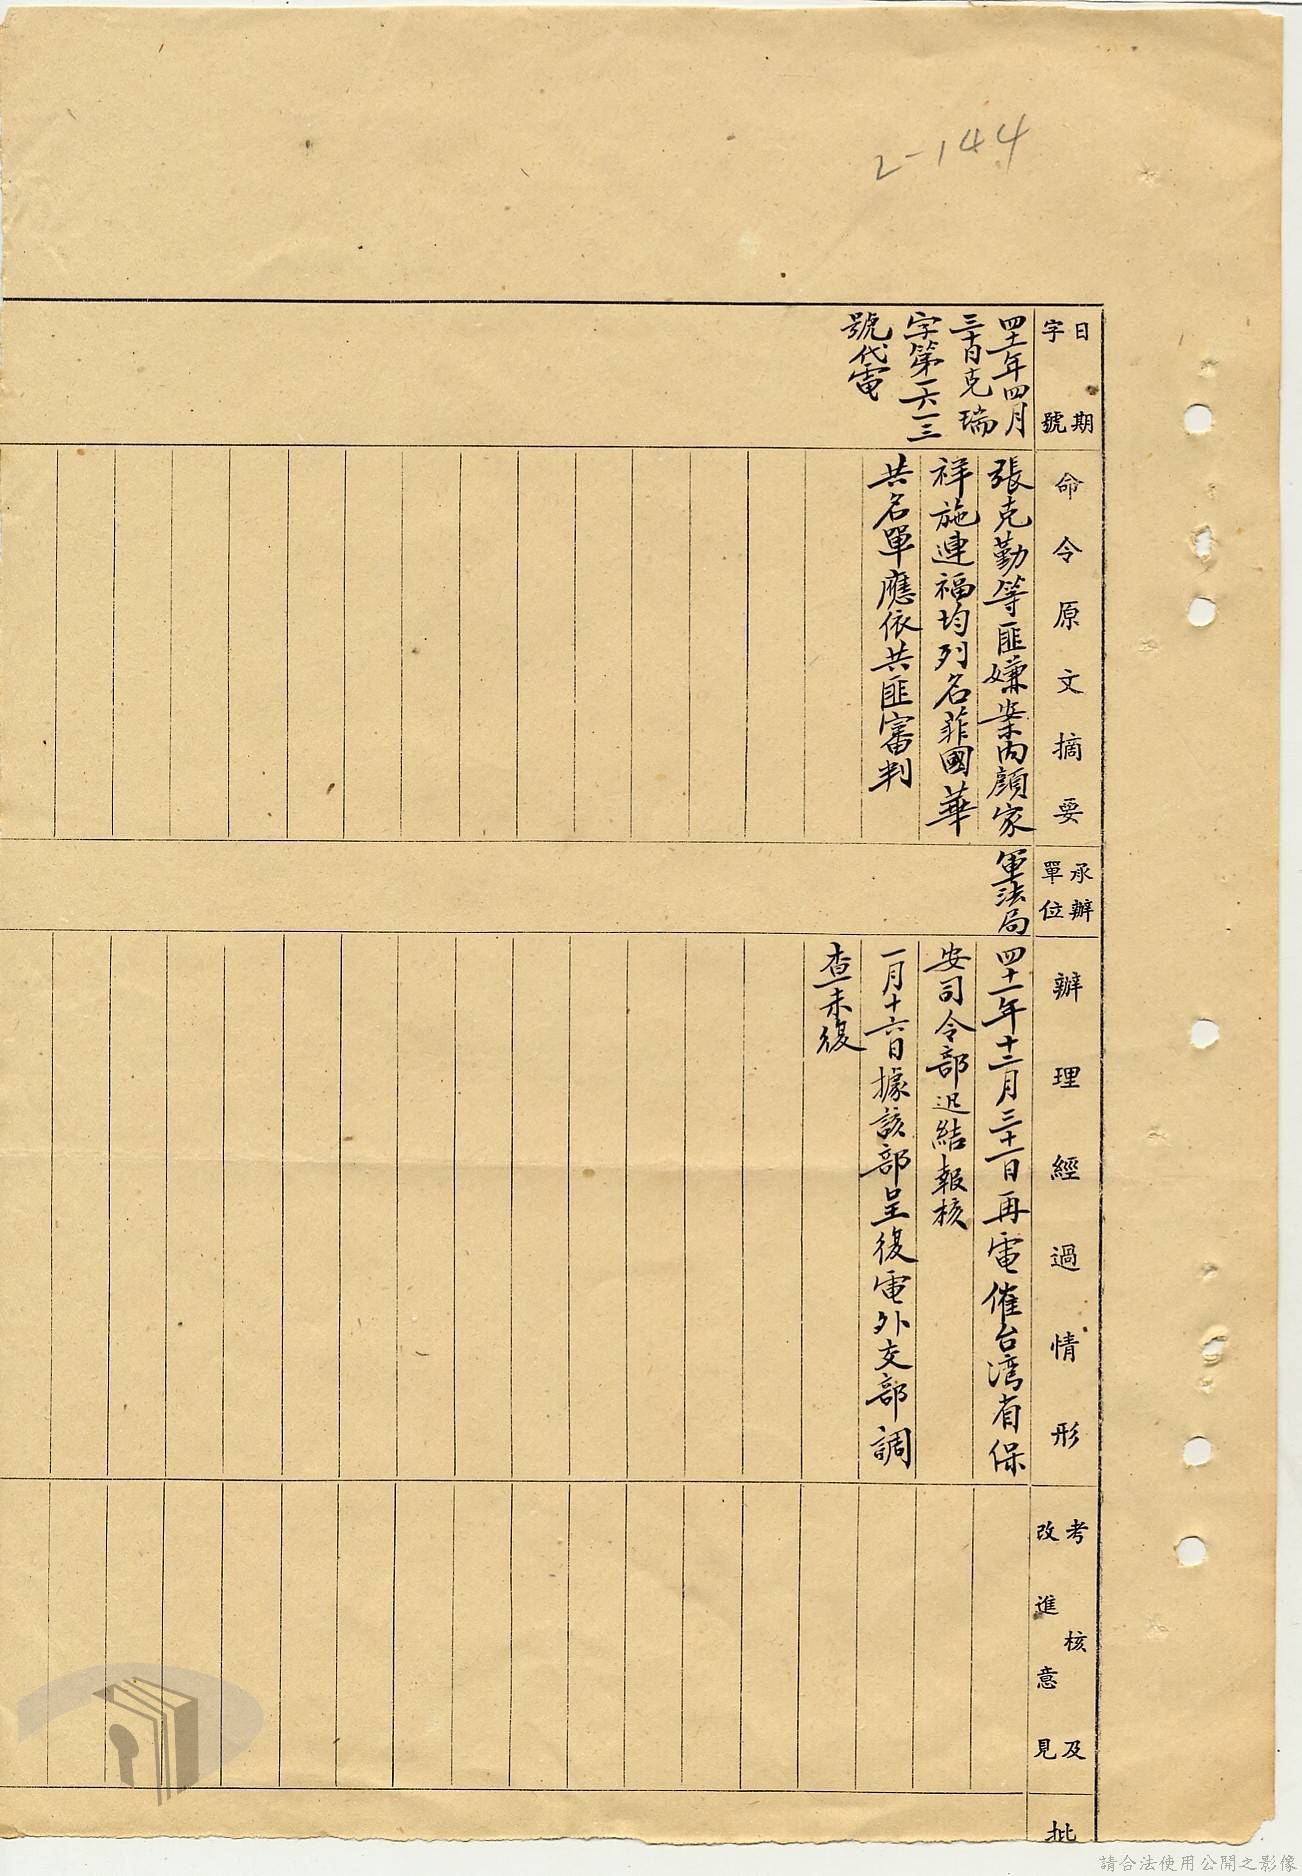 2-144
日期
字號
四十一年四月
三十日克瑞
字第一六一三
號代電
命令原文摘要
張克勤等匪嫌案內顏家
祥施連福均列名菲國華
共名單應依共匪審判
承辦
單位
軍法局
辦理經過情形
四十一年十二月三十一日再電催台湾省保
安司令部迅結報核
一月十六日據該部呈復電外交部調
查未復
考核及
改進意見
批
請合法使用公開之影像